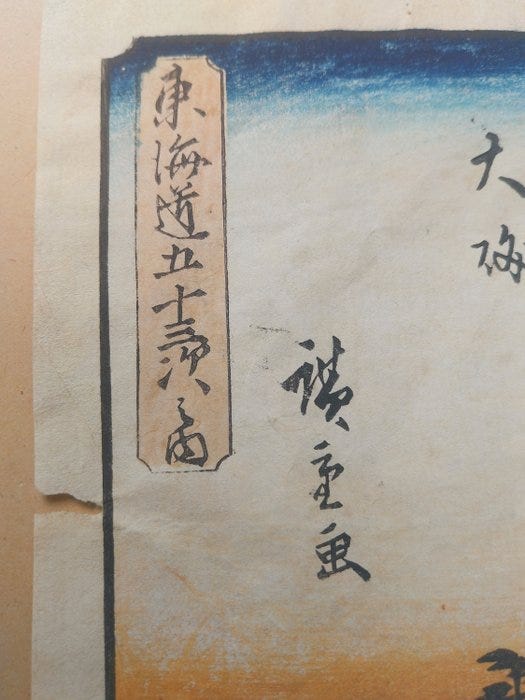 大
廣重画
東海道五十三次之内